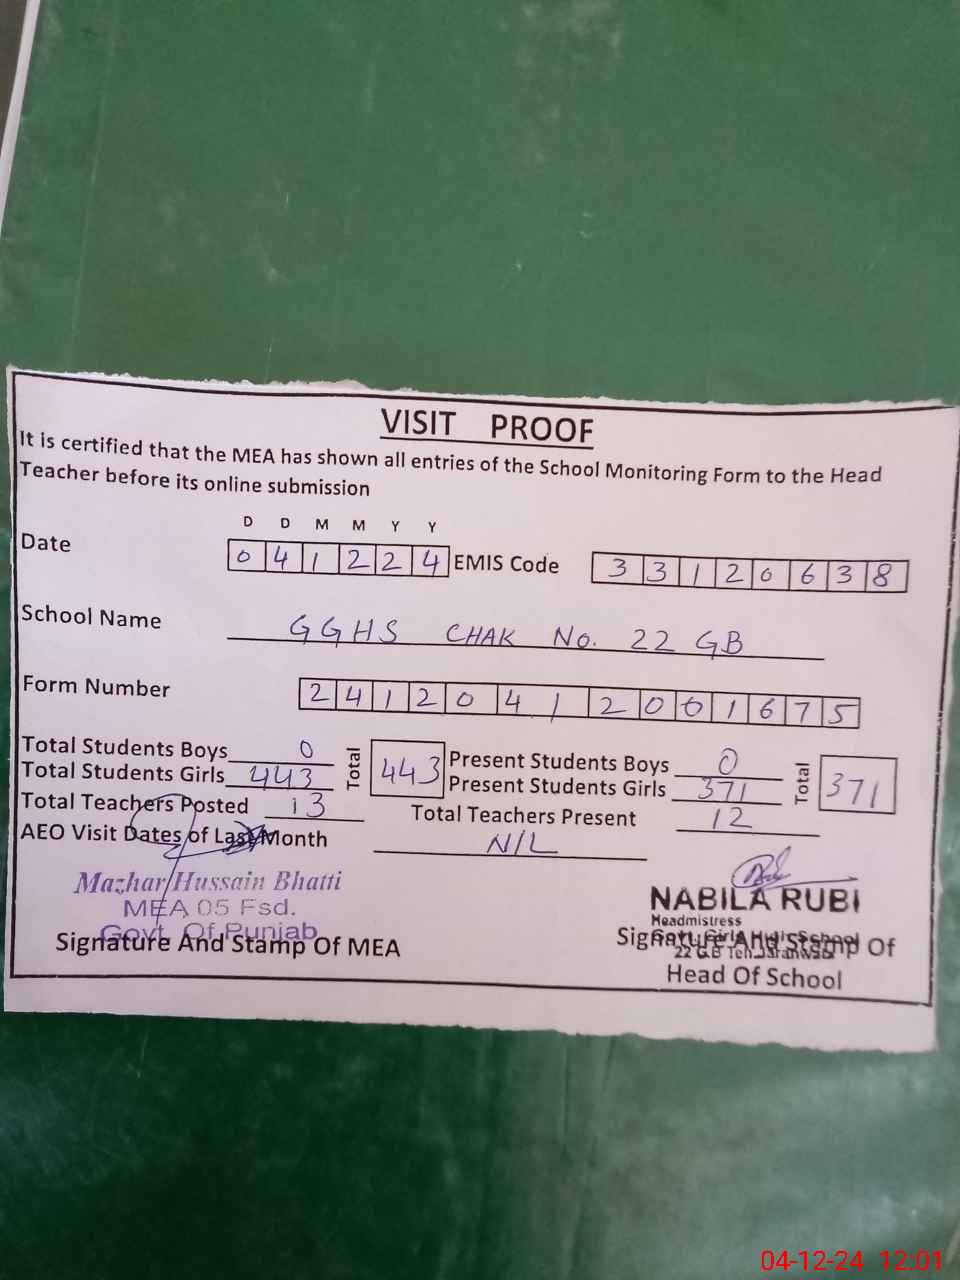 VISIT PROOF
It is certified that the MEA has shown all entries of the School Monitoring Form to the Head
Teacher before its online submission
D D M M Y Y
Date 0 4 1 2 2 4 EMIS Code 3 3 1 2 0 6 3 8
School Name GGHS CHAK No. 22 GB
Form Number 2 4 1 2 0 4 1 2 0 0 1 6 7 5
Total Students Boys 0 Total 443 Present Students Boys 0 Total 371
Total Students Girls 443 Present Students Girls 371
Total Teachers Posted 13 Total Teachers Present 12
AEO Visit Dates of Last Month N/L
Mazhar Hussain Bhatti
MEA 05 Fsd.
Govt. Of Punjab
Signature And Stamp Of MEA
NABILA RUBI
Headmistress
Govt. Girls High School
22 GB Teh. Jaranwala
Signature And Stamp Of
Head Of School
04-12-24 12:01